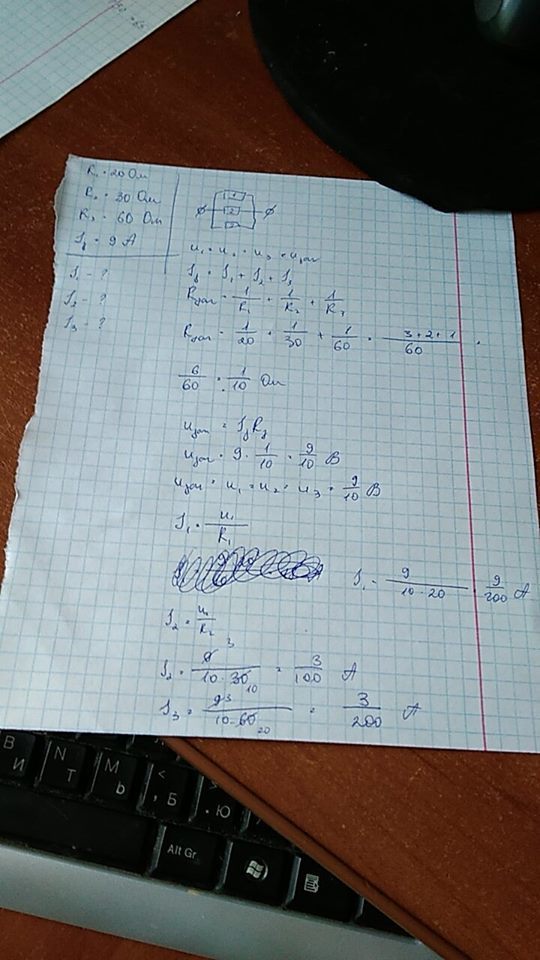 R₁ = 20 Ом
R₂ = 30 Ом
R₃ = 60 Ом
I = 9 А
I₁ - ?
I₂ - ?
I₃ - ?
1
2
3
u₁ = u₂ = u₃ = u
I = I₁ + I₂ + I₃
R = 1/R₁ + 1/R₂ + 1/R₃
R = 1/20 + 1/30 + 1/60 = 3+2+1/60 =
6/60 = 1/10 Ом
u = I R
u = 9 · 1/10 = 9/10 В
u = u₁ = u₂ = u₃ = 9/10 В
I₁ = u₁/R₁
I₁ = 9/10·20 = 9/200 А
I₂ = u₂/R₂
I₂ = 9 3/10·30 10 = 3/100 А
I₃ = 9 3/10·60 20 = 3/200 А
В И
N Т
M Ь
< , Б
> . Ю
Alt Gr